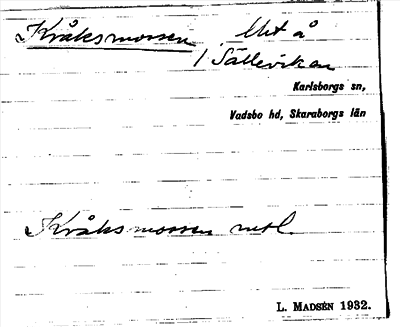 Kråksmossen, Utt å
/ Sätterikan
Karlsborgs sn,
Vadsbo hd, Skaraborgs län
Kråksmossen
L. MADSÉN 1932.